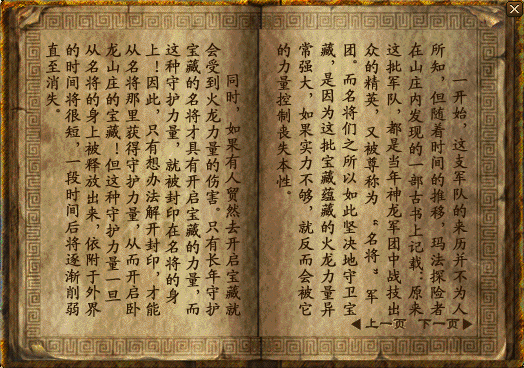 一开始，这支军队的来历并不为人
所知，但随着时间的推移，玛法探险者
在山庄内发现的一部古书上记载：原来
这批军队，都是当年神龙军团中战技出
众的精英，又被尊称为“名将”军
团。而名将们之所以如此坚决地守卫宝
藏，是因为这批宝藏蕴藏的火龙力量异
常强大，如果实力不够，就反而会被它
的力量控制丧失本性。
同时，如果有人贸然去开启宝藏就
会受到火龙力量的伤害。只有长年守护
宝藏的名将才具有开启宝藏的力量，而
这种守护力量，就被封印在名将的身
上！因此，只有想办法解开封印，才能
从名将那里获得守护力量，从而开启卧
龙山庄的宝藏！但这种守护力量一旦
从名将的身上被释放出来，依附于外界
的时间将很短，一段时间后将逐渐削弱
直至消失。
上一页 下一页